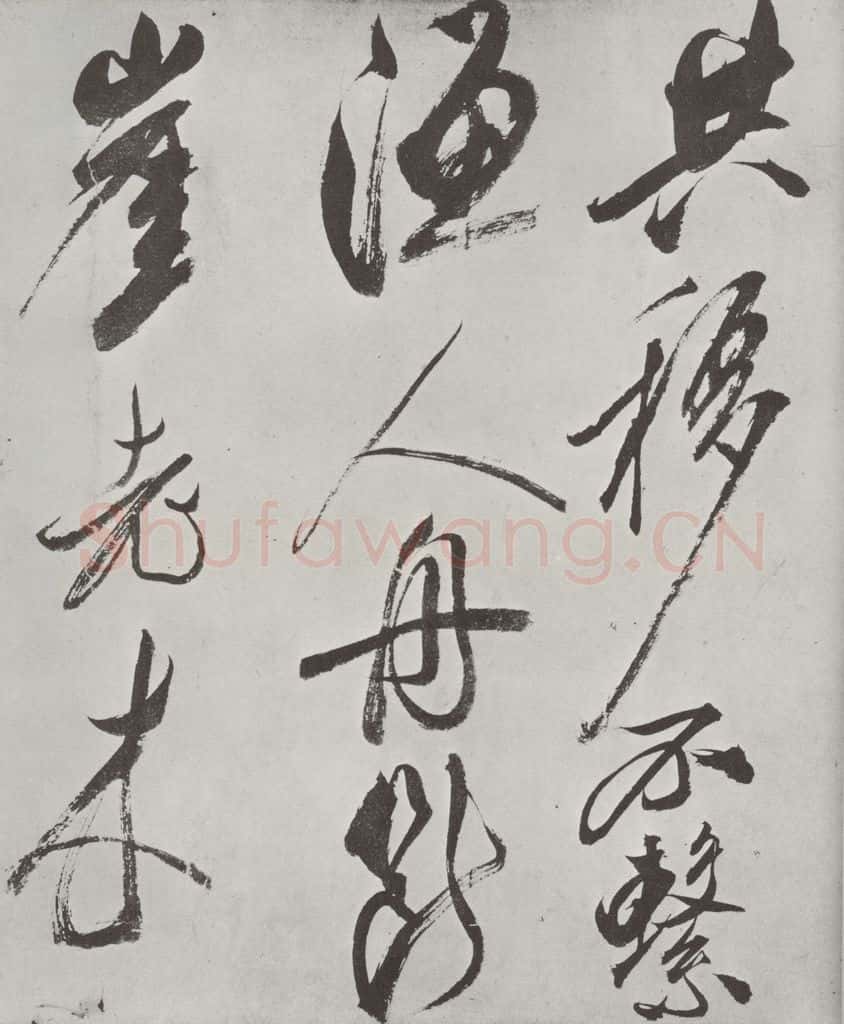 共移不繫
漁人舟斷
崖老木
Shufawang.CN